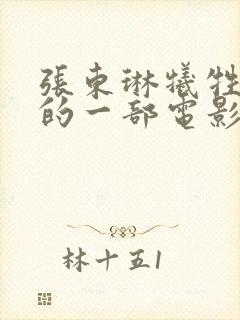 張東琳犧牲
的一部電影
林十五1